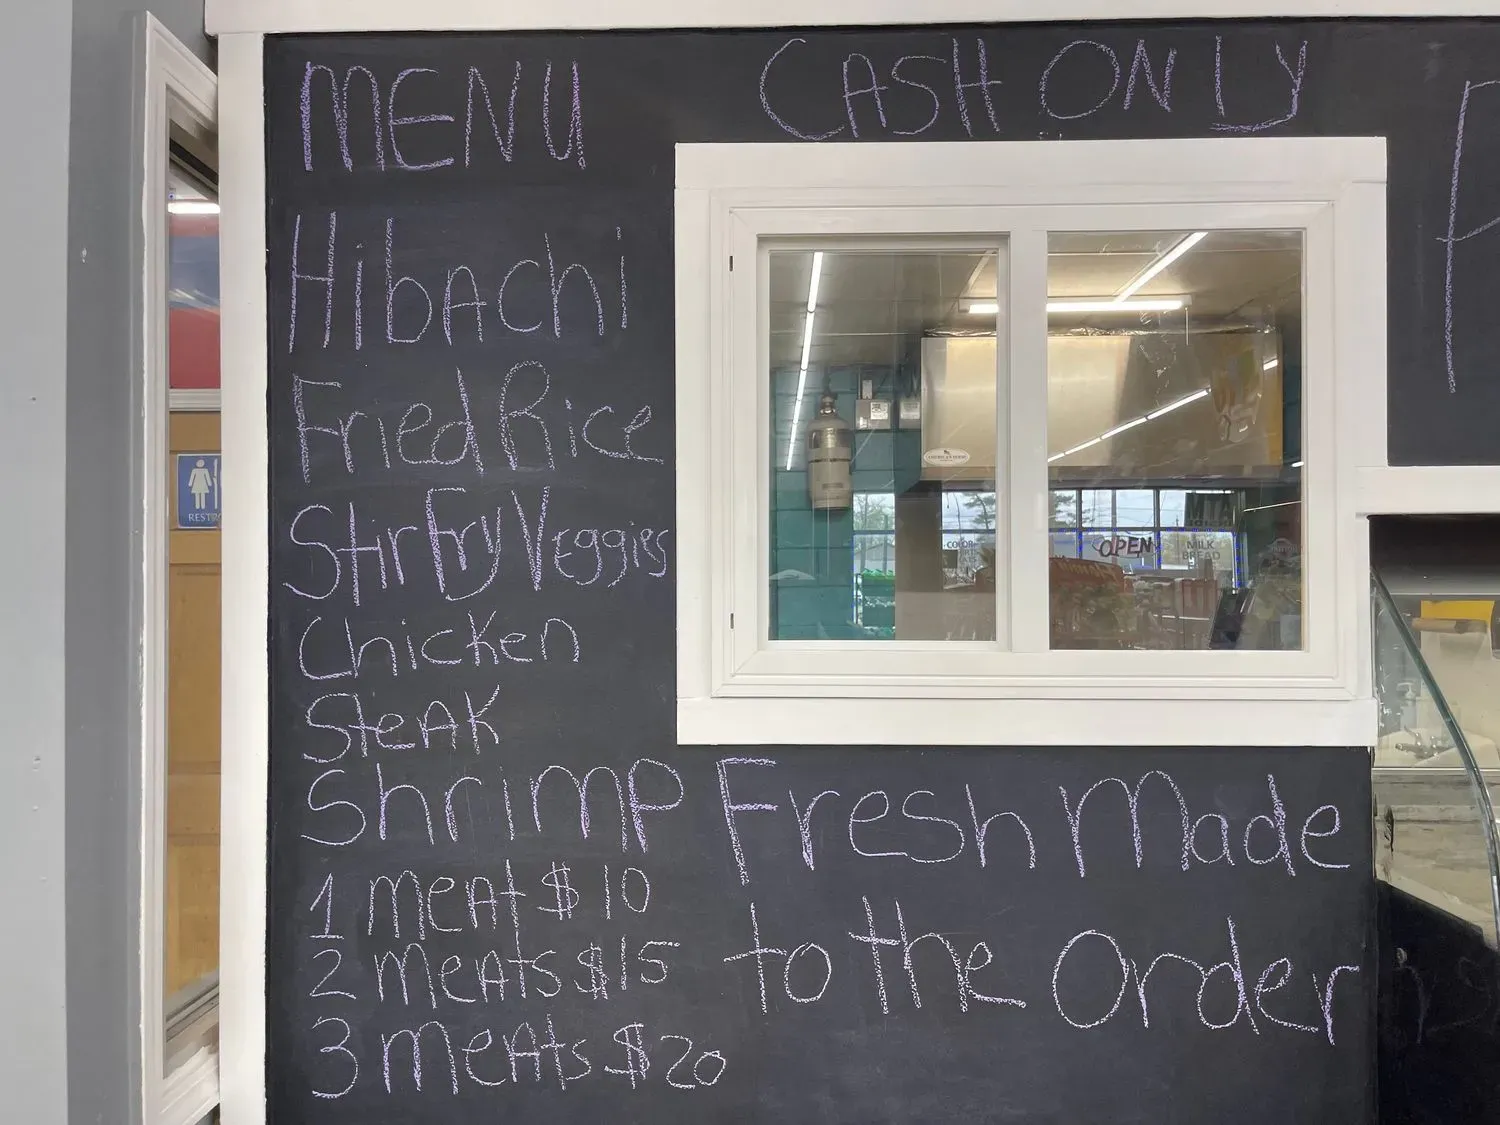 MENU
CASH ONLY
Hibachi
Fried Rice
Stir Fry Veggies
Chicken
Steak
Shrimp
1 meat $10
2 meats $15
3 meats $20
Fresh Made
to the Order
RESTR
COLOR
OPEN
MILK
BREAD